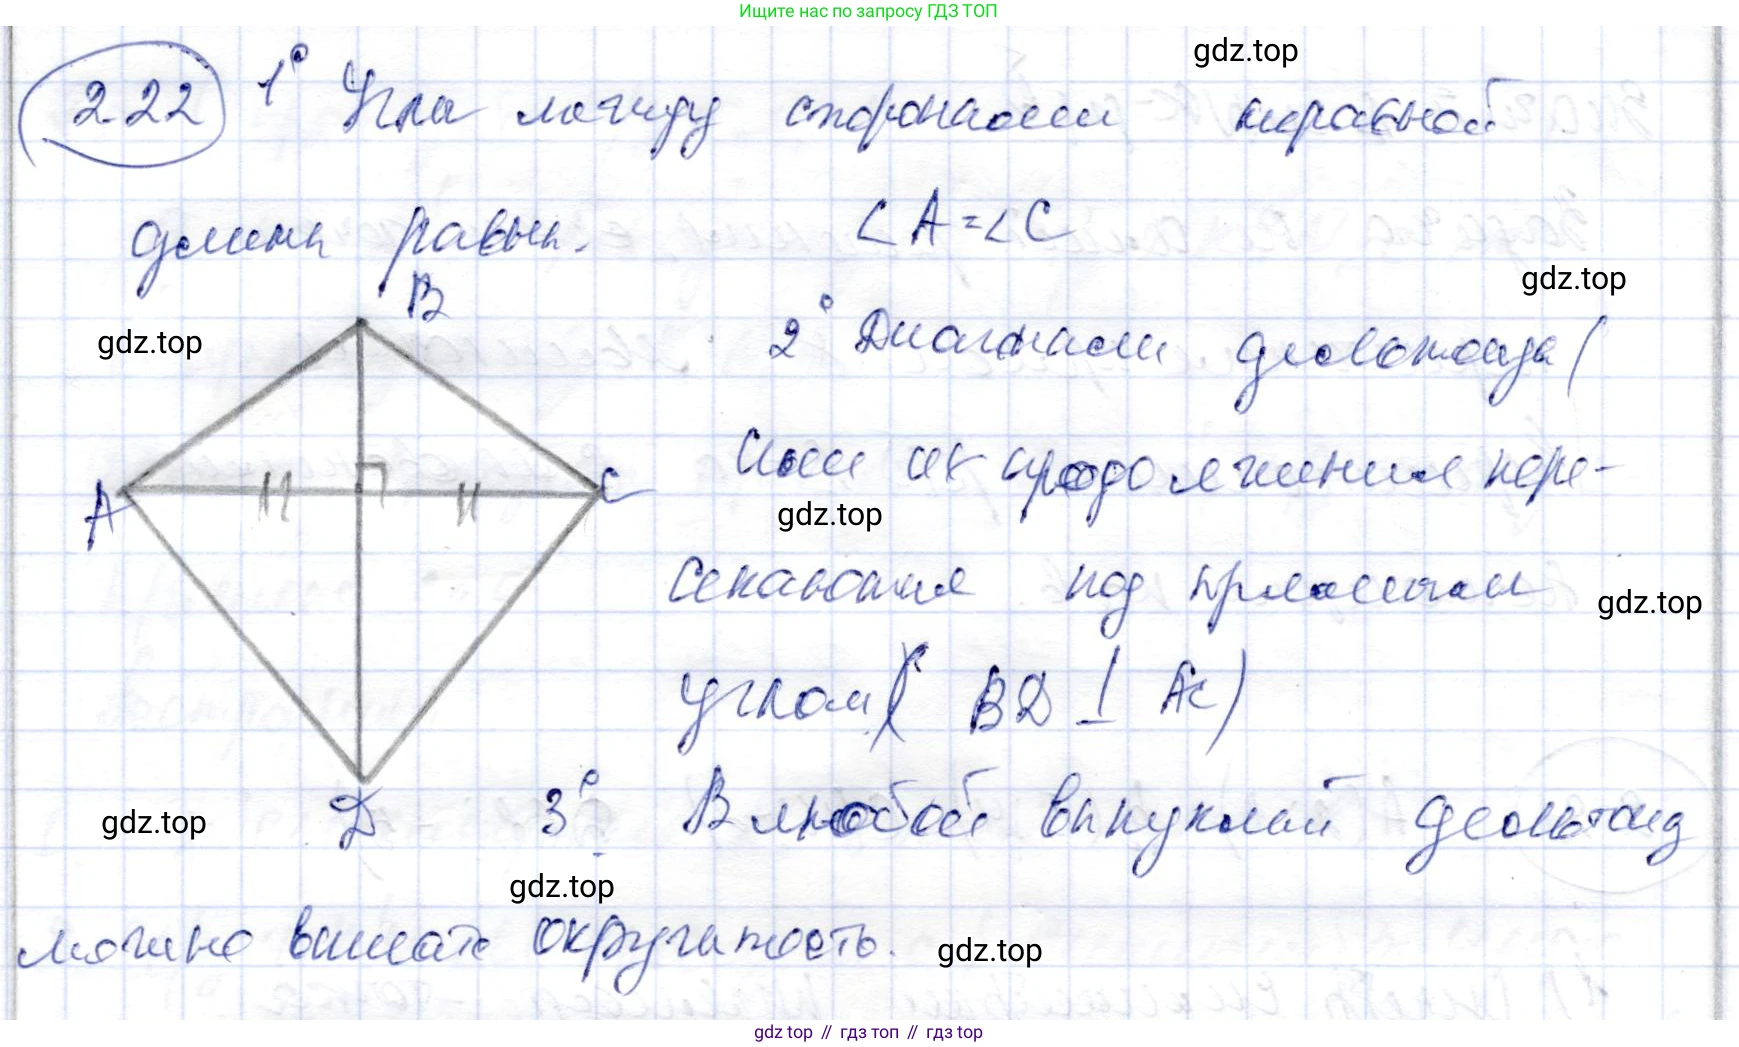 Ищите нас по запросу ГДЗ ТОП
gdz.top
222 1° Углы между сторонами неравной
длины равны. ∠A=∠C
gdz.top
B
gdz.top
2° Диагонали дельтоида (
A C
или их продолжения пере-
gdz.top
секаются под прямым
gdz.top
углом ( BD ⊥ AC)
D
3° В любой выпуклый дельтоид
gdz.top
gdz.top
можно вписать окружность.
gdz.top
gdz top // гдз топ // гдз top